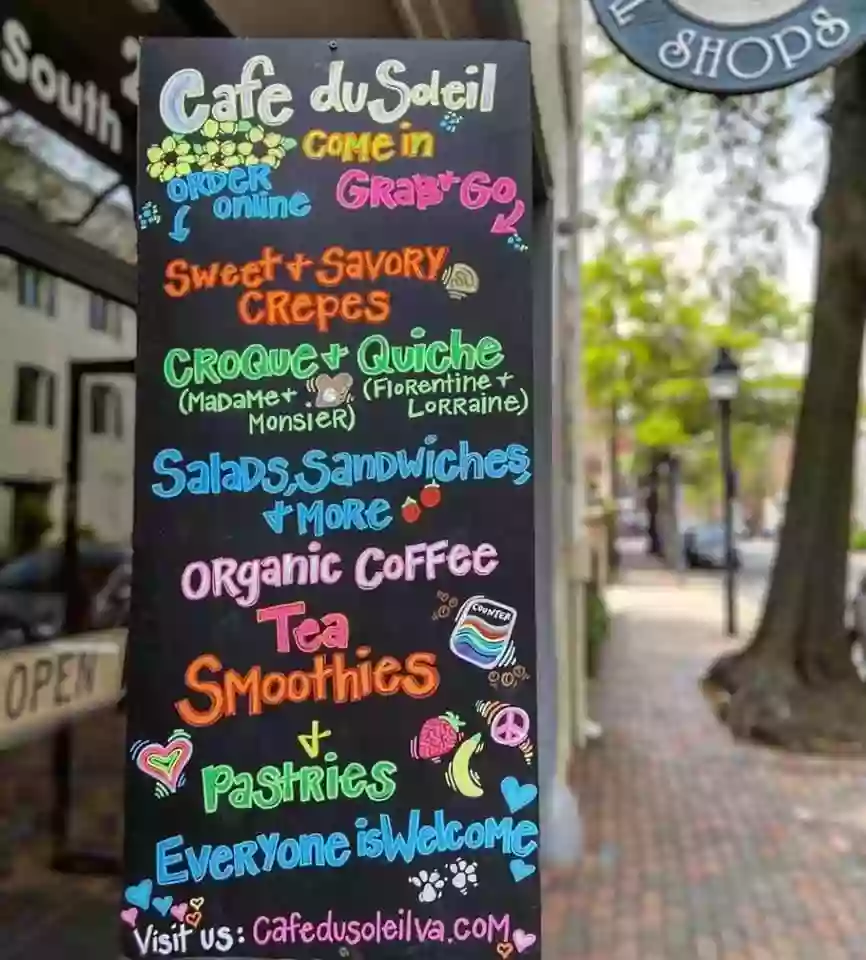 South
2
SHOPS
Cafe du Soleil
COME in
ORDER
online
GRAB + GO
Sweet + SAVORY
CRepes
CROQUe + Quiche
(MADAMe +
MONSIeR)
(FlORentine +
LORRAine)
SalaDs, SanDwiches,
+ MORe
ORganic CoFFee
COUNTER
Tea
SMoothies
+
PastRies
OPEN
EveRYone is WelcoMe
Visit us: cafedusoleilva.coM